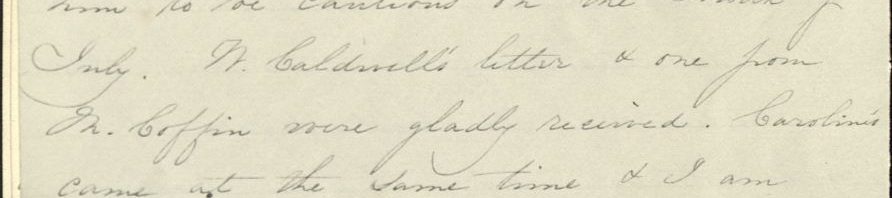 him to be cautious on the
July. W. Caldwell's letter & one from
M. Coffin were gladly received. Caroline's
came at the same time & I am